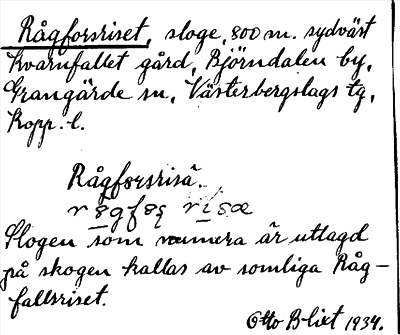 Rågforsriset, sloge, 800 m. sydväst
Kvarnfallet gård, Björndalen by,
Grangärde sn, Västerbergslags tg,
Kopp. l.
Rågforsrisä.
Slogen som numera är uttagd
på skogen kallas av somliga Råg-
fallsriset.
Otto Blixt 1934.